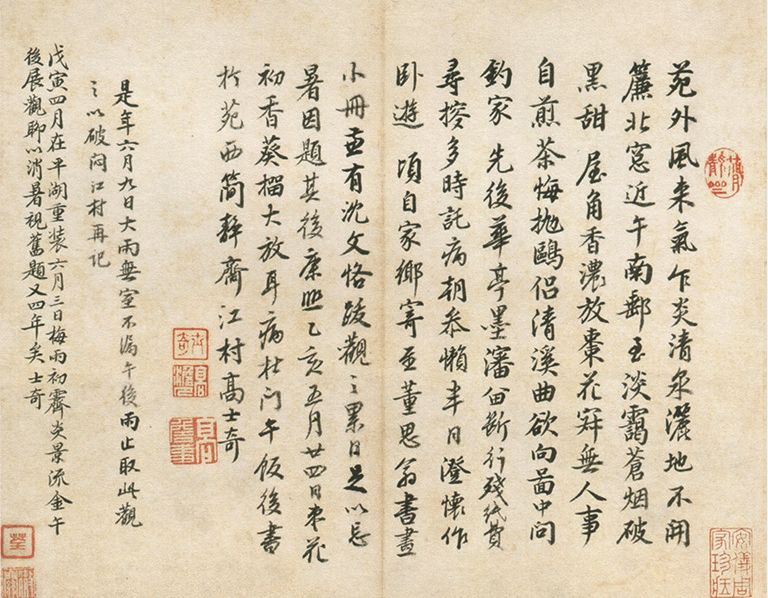 苑外風来氣乍炎清泉灑地不開
簾北窓近午南郵至淡靄蒼烟破
黑甜 屋角香濃放棗花寂無人事
自煎茶悔抛鷗侣清溪曲欲向啚中問
釣家 先後華亭墨瀋留斷行殘紙費
尋搜多時託病朝叅懶半日澄懷作
卧遊 頃自家鄉寄至董思翁書畫
小冊並有沈文恪跋觀之累日足以忘
暑因題其後康熙乙亥五月廿四日棗花
初香葵榴大放耳病杜門午飯後書
於苑西簡靜齋江村高士奇
是年六月九日大雨無室不漏午後雨止取此觀
之以破悶江村再记
戊寅四月在平湖重装六月三日梅雨初霽炎景流金午
後展觀聊以消暑視舊題又四年矣士奇
安儀周家珍藏